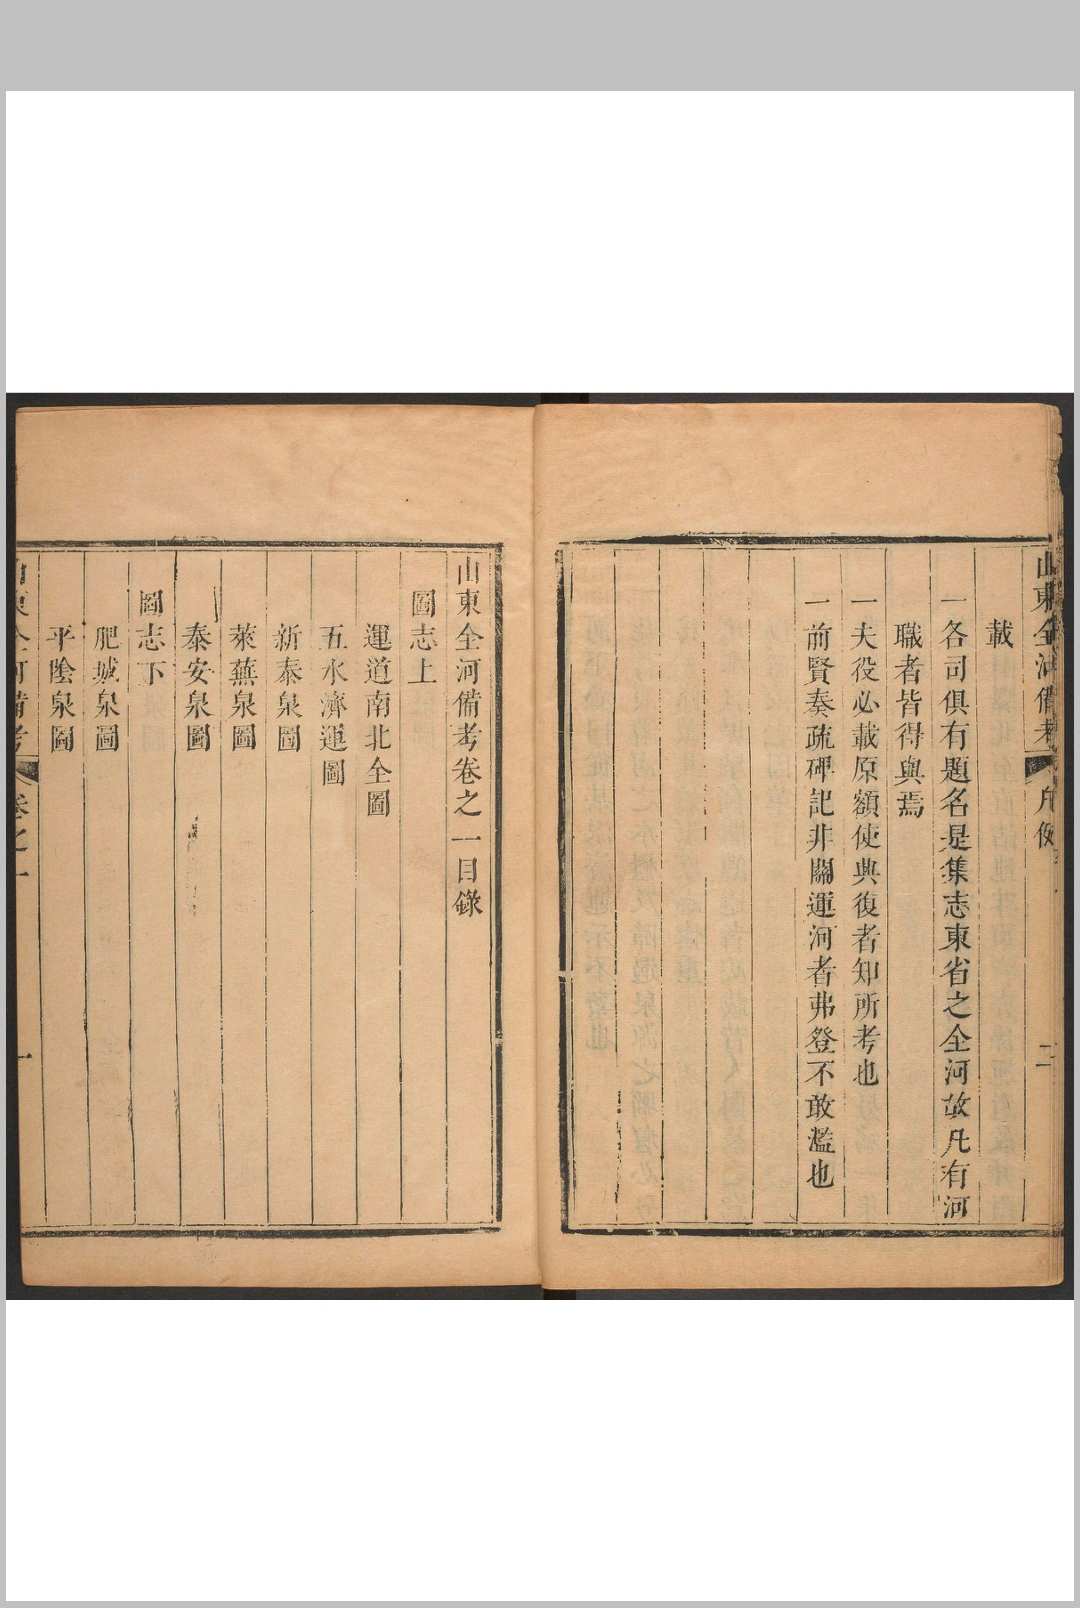 山東全河備考
凡例
二
載
一各司俱有題名是集志東省之全河故凡有河
職者皆得與焉
一夫役必載原額使典復者知所考也
一前賢奏疏碑記非關運河者弗登不敢濫也
山東全河備考卷之一目錄
圖志上
運道南北全圖
五水濟運圖
新泰泉圖
萊蕪泉圖
泰安泉圖
圖志下
肥城泉圖
平陰泉圖
山東全河備考
卷之一
一